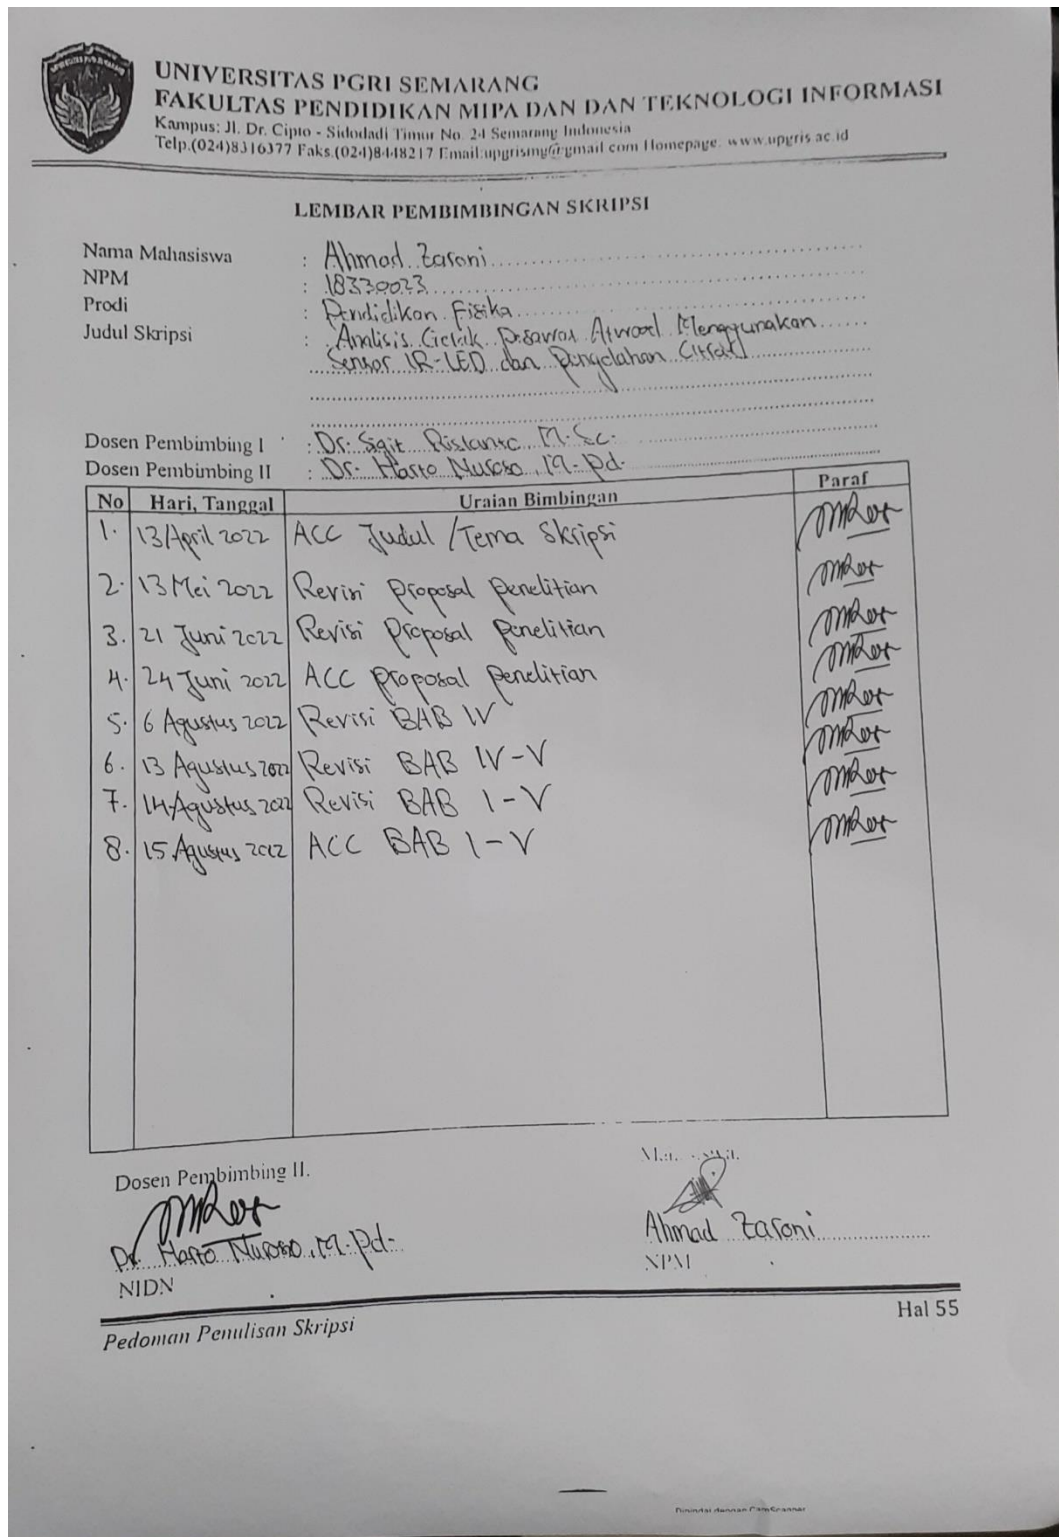 UNIVERSITAS PGRI SEMARANG
FAKULTAS PENDIDIKAN MIPA DAN DAN TEKNOLOGI INFORMASI
Kampus: Jl. Dr. Cipto - Sidodadi Timur No. 24 Semarang Indonesia
Telp.(024)8316377 Faks.(024)8448217 Email:upgrismg@gmail.com Homepage: www.upgris.ac.id
LEMBAR PEMBIMBINGAN SKRIPSI
Nama Mahasiswa : Ahmad Zaroni
NPM : 18330023
Prodi : Pendidikan Fisika
Judul Skripsi : Analisis Gerak Pesawat Atwood Menggunakan
Sensor IR-LED dan Pengolahan Citra
Dosen Pembimbing I : Dr. Sigit Ristanto, M.Sc.
Dosen Pembimbing II : Dr. Harto Nuroso, M.Pd.
No Hari, Tanggal Uraian Bimbingan Paraf
1. 13/April 2022 ACC Judul /Tema Skripsi
2. 13 Mei 2022 Revisi proposal penelitian
3. 21 Juni 2022 Revisi proposal penelitian
4. 24 Juni 2022 ACC proposal penelitian
5. 6 Agustus 2022 Revisi BAB IV
6. 13 Agustus 2022 Revisi BAB IV-V
7. 14 Agustus 2022 Revisi BAB I-V
8. 15 Agustus 2022 ACC BAB I-V
Dosen Pembimbing II.
Dr. Harto Nuroso, M.Pd.
NIDN
Ahmad Zaroni
NPM
Pedoman Penulisan Skripsi
Hal 55
Dipindai dengan CamScanner